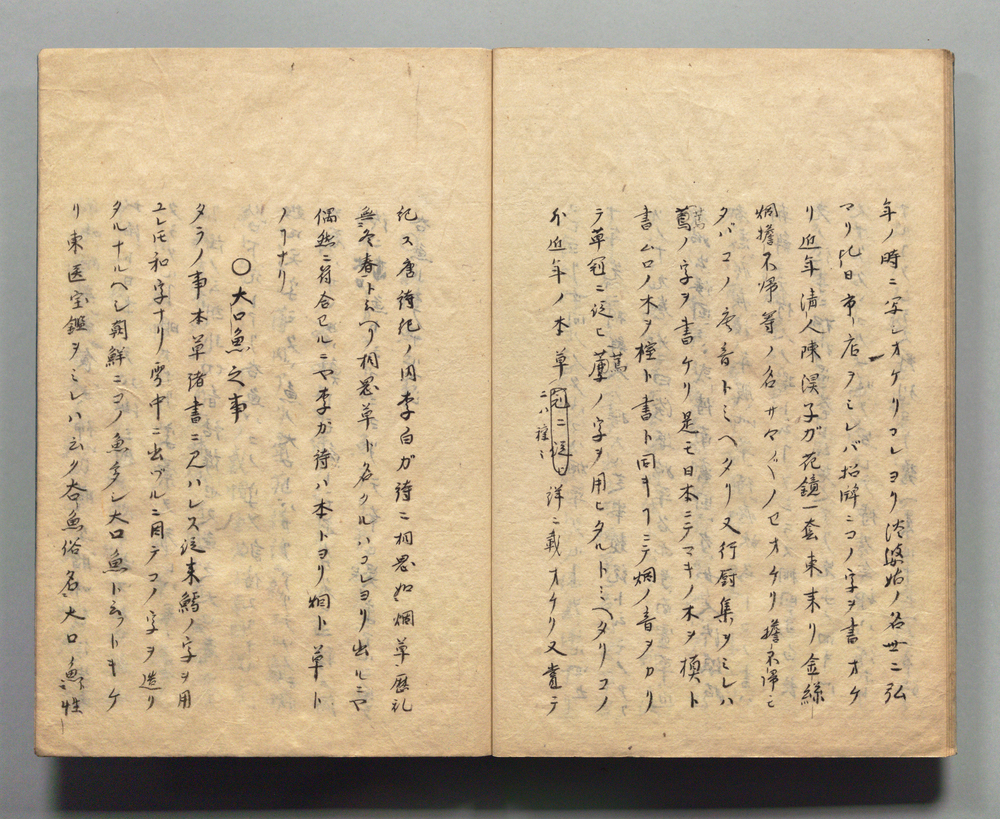 年ノ時ニ写シオケリコレヨリ淡婆姑ノ名世ニ弘
マリ此日市店ヲミレバ招牌ニコノ字ヲ書オケ
リ近年清人陳淏子ガ花鏡一套東来リ金絲
烟擔不帰等ノ名サマ〲ノセオケリ擔不帰ㇵ
タバコノ唐音トミヘタリ又行厨集ヲミレハ
蔫ノ字ヲ書ケリ是モ日本ニテマキノ木ヲ槙ト
書ムロノ木ヲ榁ト書ト同キヿニテ烟ノ音ヲカリ
テ草冠ニ従ヒ蔫ノ字ヲ用ヒタルトミヘタリコノ
外近年ノ本草ニハ種ミ詳ニ載オケリ又嘗テ
冠ニ従ヒ
記ス唐詩紀ノ内李白ガ詩ニ相思如烟草歴乱
無冬春トミヘリ相思草ト名クルハコレヨリ出ルニヤ
偶然ニ符合セルニヤ李ガ詩ハ本トヨリ烟ト草ト
ノヿナリ
〇大口魚之事
タラノ事本草諸書ニアハレス従来鱈ノ字ヲ用
ユレ𪜈和字ナリ雪中ニ出ヅルニ因テコノ字ヲ造リ
タルナルヘシ朝鮮ニコノ魚多シ大口魚ト云フトキケ
リ東医宝鑑ヲミレハ云ク夻魚俗名大口魚性